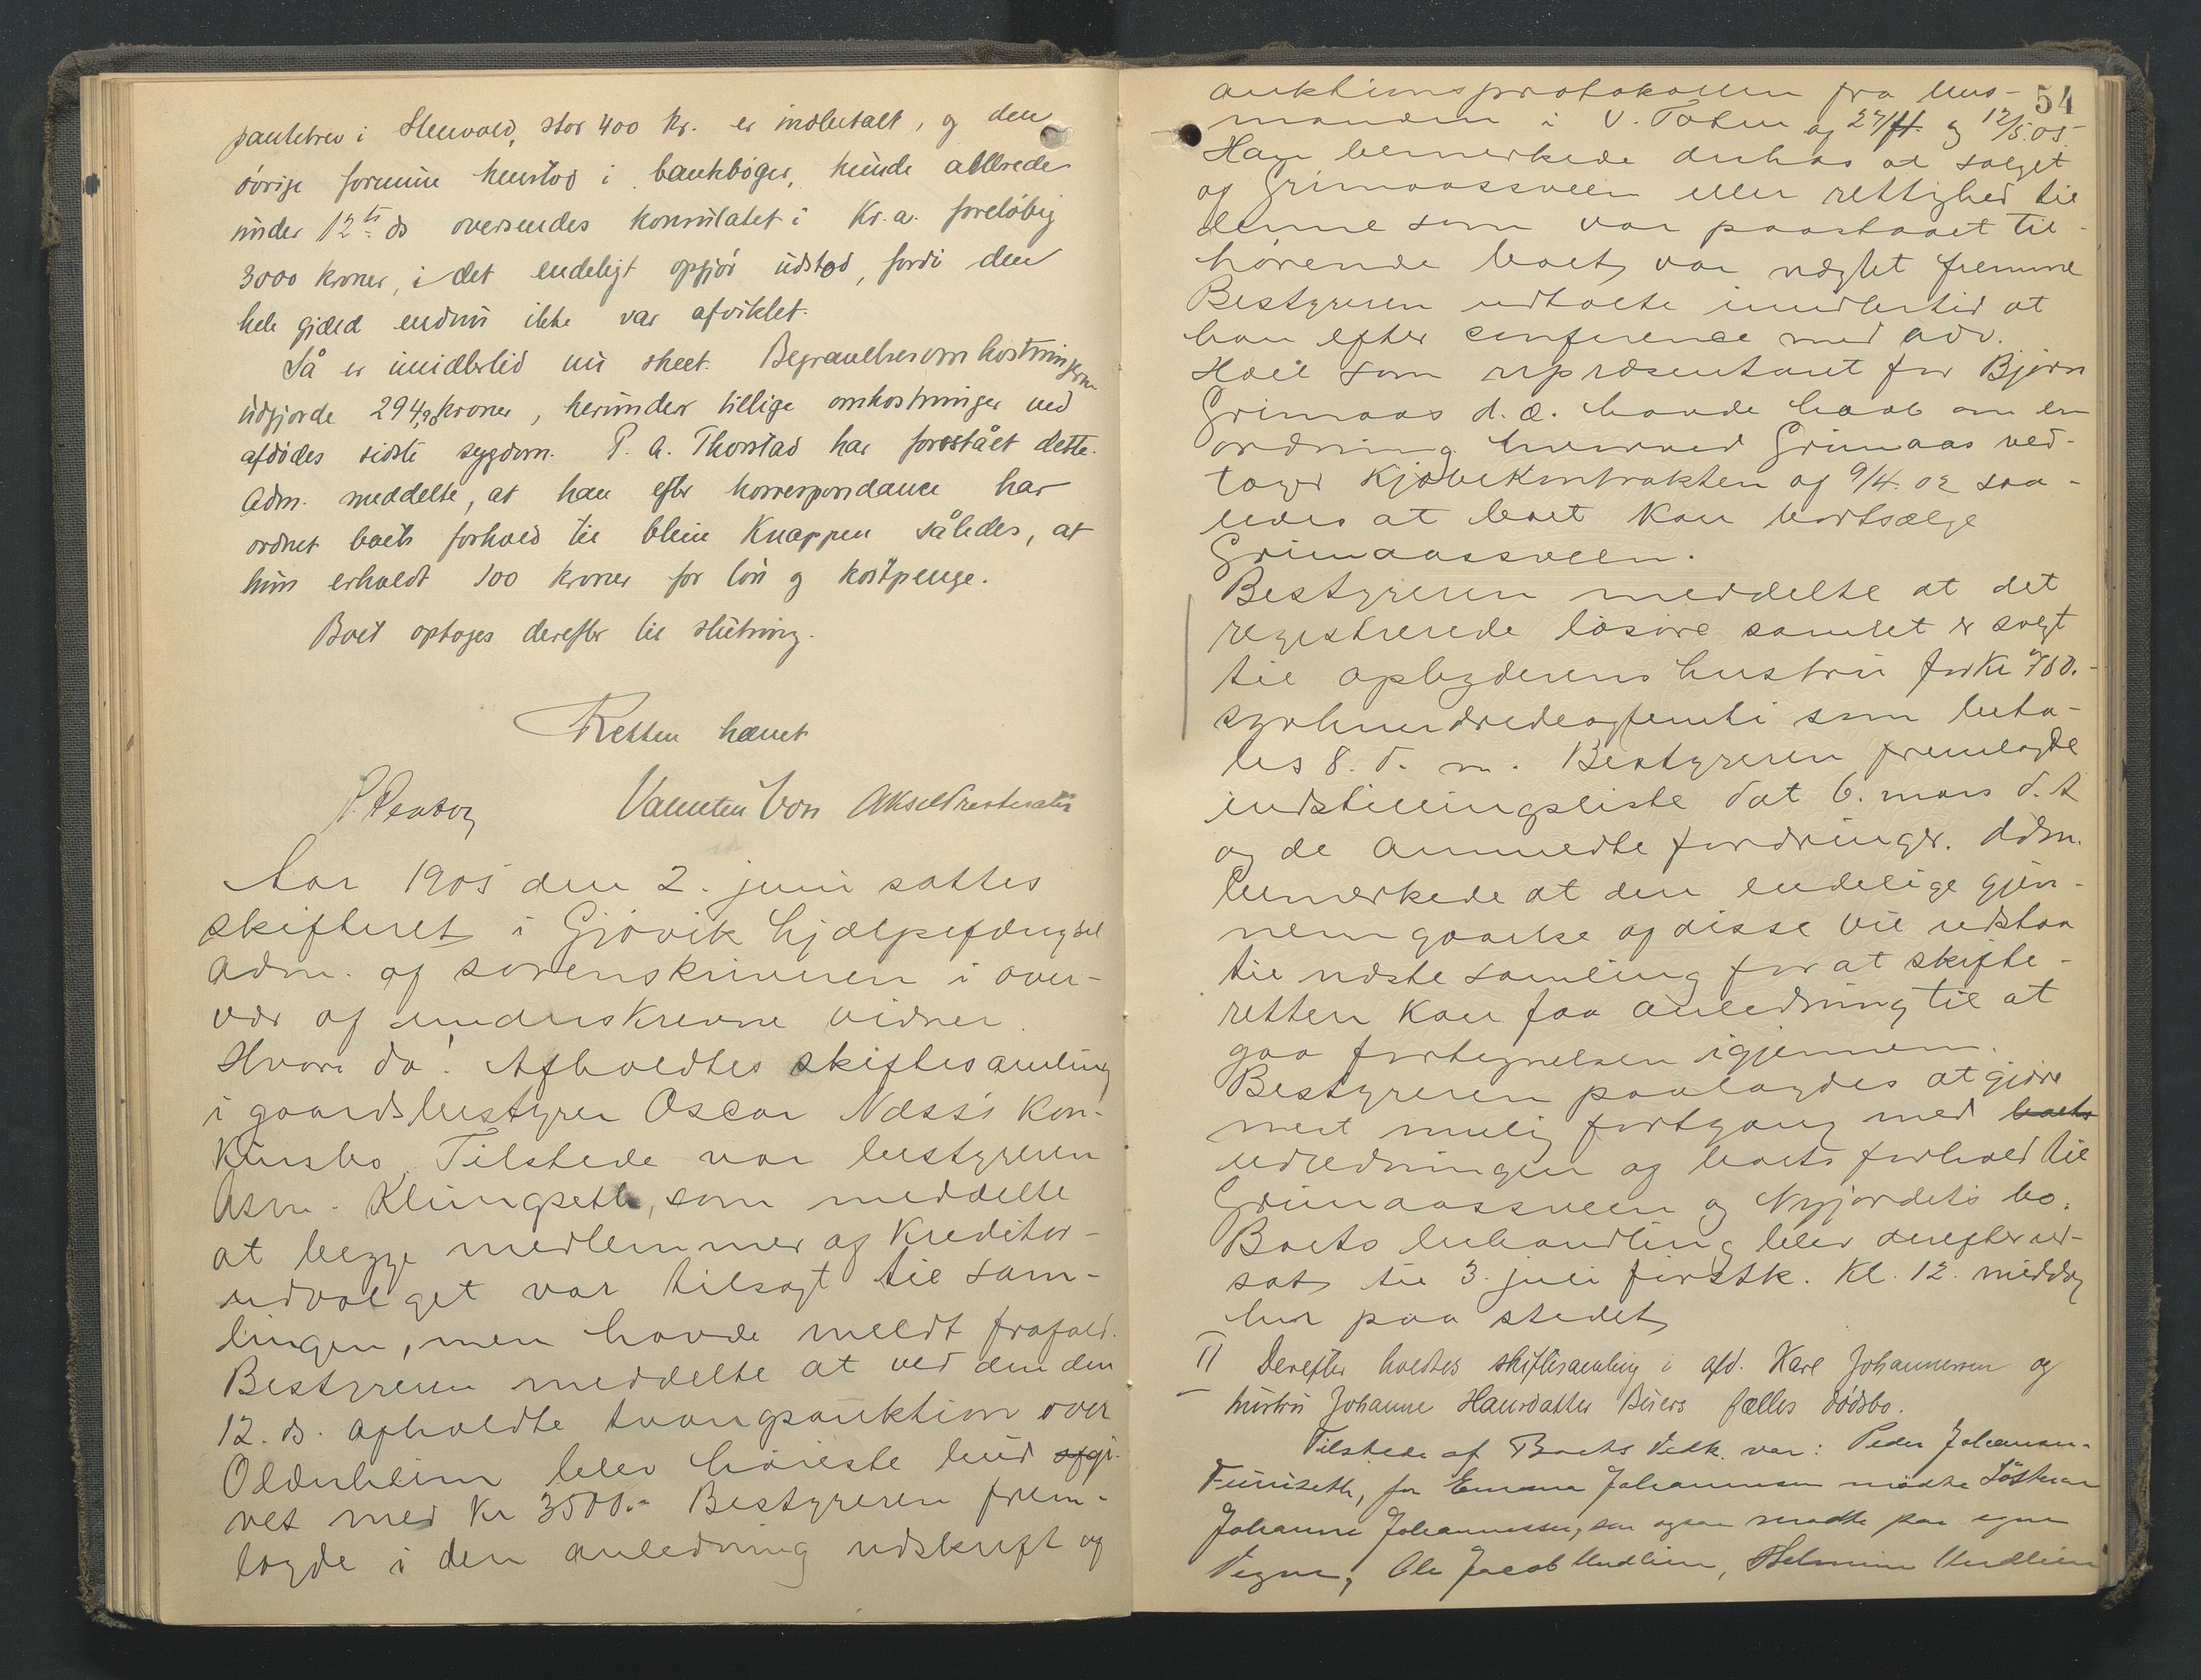 pantebrev i Stenvold, stor 400 kr. er indbetalt, og den
övrige formue henstod i bankbøger, kunde allerede
under 12te ds oversendes konsulatet i Kr.a. foreløbig
3000 kroner, i det endeligt opgjör udstod, fordi den
hele gjæld endnu ikke var afviklet.
Så er imidlertid nu skeet. Begravelsesomkostningerne
udgjorde 294,98 kroner, herunder tillige omkostninger ved
afdödes sidste sygdom. P. A. Thorstad har forestået dette.
Adm. meddelte, at han efter korrespondance har
ordnet boets forhold til Knappen således, at
hun erholdt 100 kroner for lön og kostpenge.
Boet optoges derefter til slutning.
Retten hævet
Aar 1905 den 2. juni sattes
skifteret i Gjövik hjælpefængsel
adm. af sorenskriveren i over-
vær af underskrevne vidner.
Hvor da! Afholdtes skiftesamling
i gaardsbestyrer Oscar Næss's kon-
kursbo. Tilstede var bestyreren
Asm. Klingseth, som meddelte
at begge medlemmer af kreditor-
udvalget var tilsagt til sam-
lingen, men havde meldt frafald.
Bestyreren meddelte at ved den den
12. ds. afholdte tvangsauktion over
Oldenheim blev höieste bud afgi-
vet med Kr 3500.- Bestyreren frem-
lagde i den anledning udskrift og
54
auktionsprotokollen fra lens-
manden i V. Toten af 27/4 og 12/5.05.
Han bemerkede derhos at salget
af Grimaassveen eller rettighed til
denne som var paastaaet til-
hörende boet, var nægtet fremme
Bestyreren udtalte imidlertid at
han efter conference med adv.
Hoel som repræsentant for Björn
Grimaas d. æ. havde haab om en
ordning hvorved Grimaas ved-
tager Kjöbekontrakten af 9/4.02 saa-
ledes at boet kan bortsælge
Grimaassveen.
Bestyreren meddelte at det
registrerede lösöre samlet er solgt
til opbyderens hustru for Kr 750.-
syvhundredeogfemti som beta-
les 8. d. m. Bestyreren fremlagde
indstillingsliste dat 6. mars d. A
og de anmeldte fordringer. Adm.
bemerkede at den endelige gjen-
nemgaaelse af disse vil udstaa
til næste samling for at skifte-
retten kan faa anledning til at
gaa fortegnelsen igjennem.
Bestyreren paalagdes at gjöre
mest mulig fortgang med boets
udredningen af boets forhold til
Grimaassveen og Nyjordets bo.
Boets behandling blev derefter ud-
sat til 3. juli förstk. Kl. 12. middag
her paa stedet,
II Derefter holdtes skiftesamling i afd. Karl Johannessen og
hustru Johanne Hansdatter Bues fælles dödsbo.
Tilstede af Boets Vedk. var: Peder Johansen
Furuseth, for Emma Johannessen mødte Söstern
Johanne Johannessen, som ogsaa mødte paa egne
Vegne, Ole Jacob Undlien, Helmine Undlien